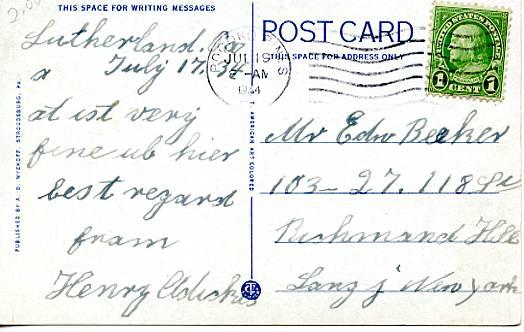 THIS SPACE FOR WRITING MESSAGES
Lutherland. Pa
July 17. 34
at ist very
fine ub hier
best regard
fram
Henry
PUBLISHED BY A. B. WYCKOFF, STROUDSBURG, PA.
C. T. AMERICAN ART COLORED
POST CARD
THIS SPACE FOR ADDRESS ONLY
JUL 19
AM
UNITED STATES POSTAGE
1 CENT 1
Mr Edw Becker
103-27. 118 St
Richmand Hill
Lang J New yark